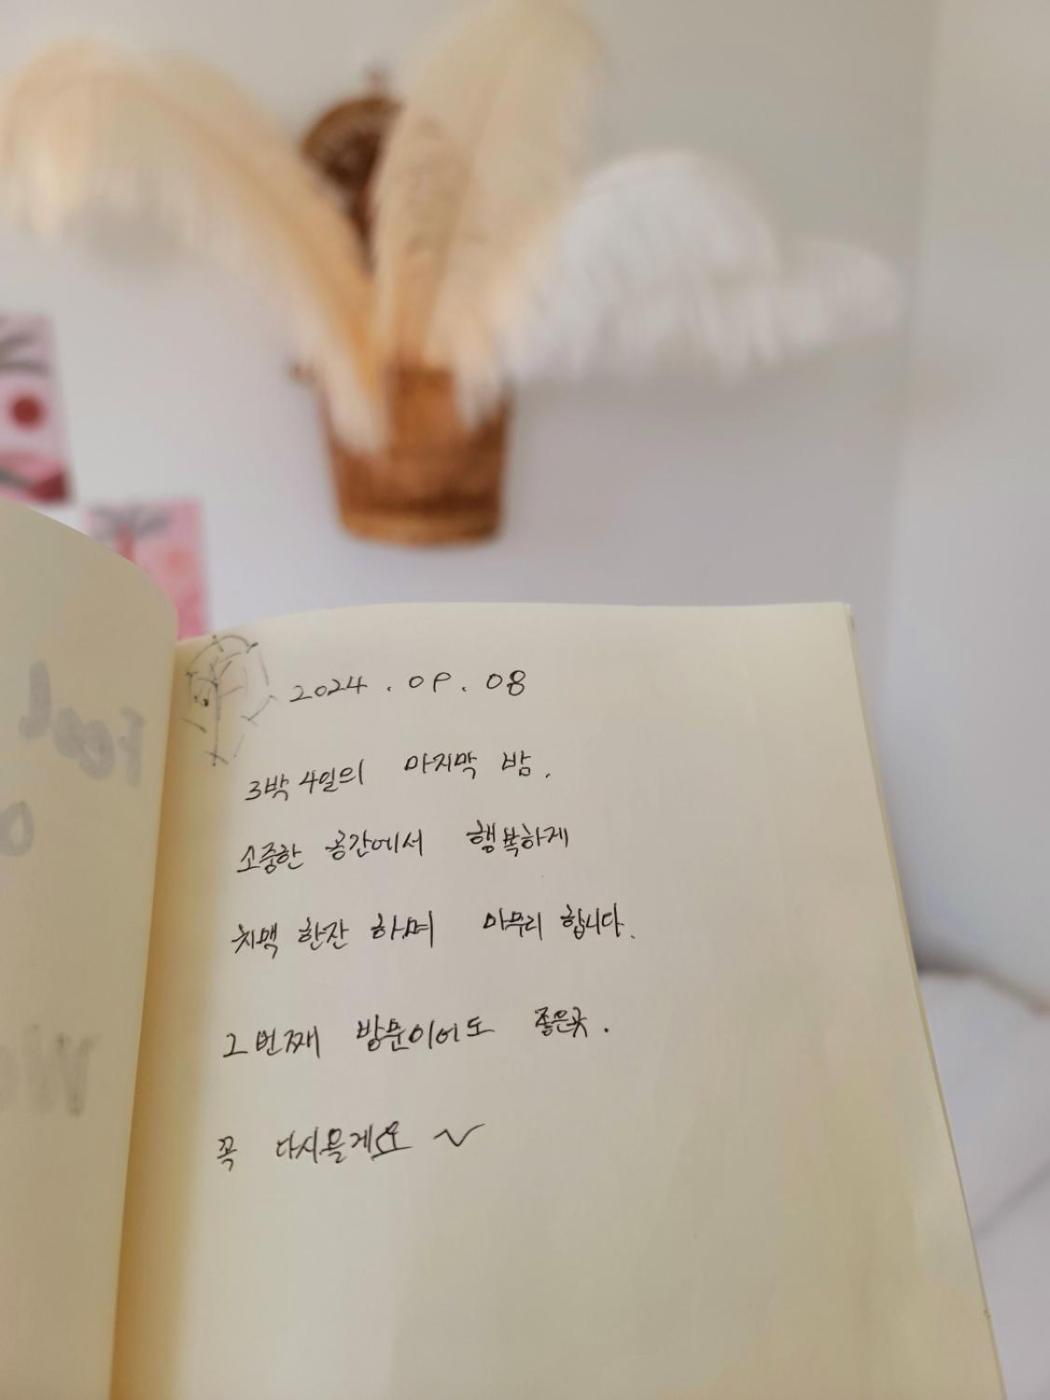 2024. 09. 08
3박 4일의 마지막 밤.
소중한 공간에서 행복하게
치맥 한잔 하며 마무리 합니다.
2번째 방문이어도 좋은곳.
꼭 다시올게요 ~
Feel